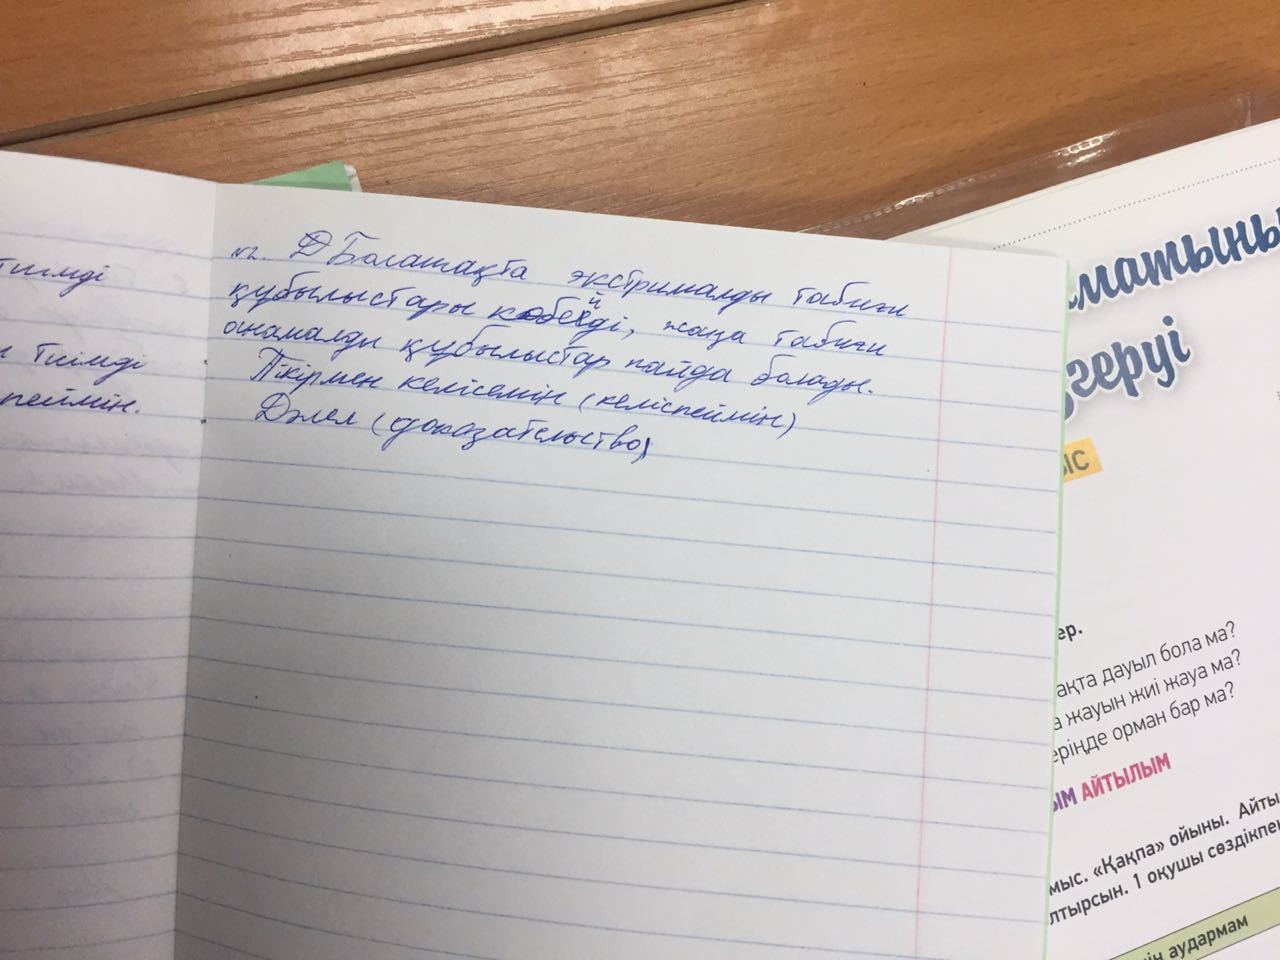 тиімді
тиімді
пеймін.
№2. Болашақта экстрималды табиғи
құбылыстары көбейді, жаңа табиғи
аномалды құбылыстар пайда болады.
Пікірмен келісемін (келіспеймін)
Дәлел (доказательство)
матының
геруі
ЫС
ер.
ақта дауыл бола ма?
а жауын жиі жауа ма?
еріңде орман бар ма?
ЫМ АЙТЫЛЫМ
мыс. «Қақпа» ойыны. Айты
лтырсын. 1 оқушы сөздікпен
ін аудармам